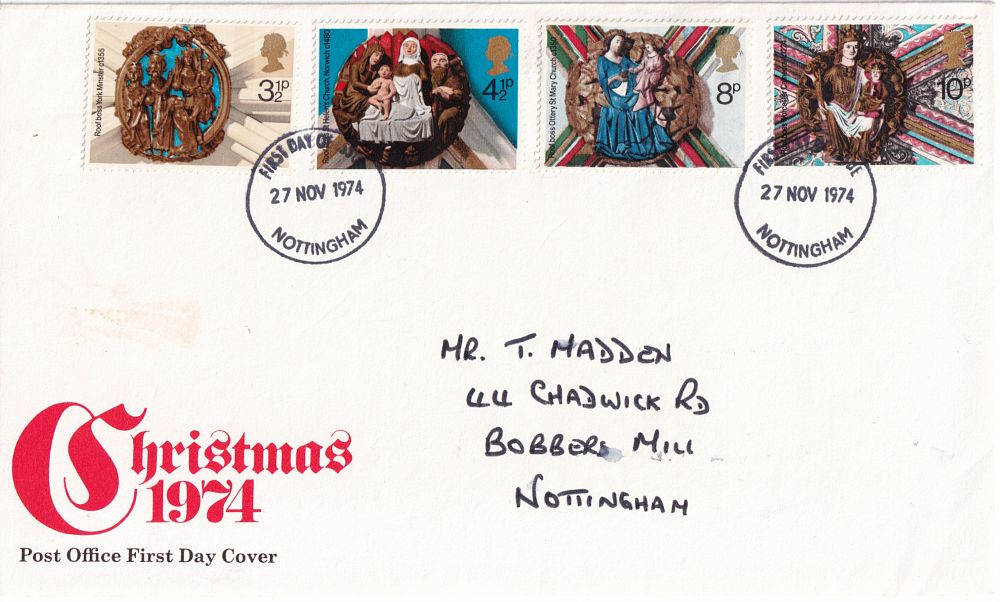 Roof boss York Minster c1355
3½p
St Helen's Church, Norwich c1480
4½p
Roof boss Ottery St Mary Church c1350
8p
10p
FIRST DAY OF
27 NOV 1974
NOTTINGHAM
FIRST
27 NOV 1974
NOTTINGHAM
MR. T. MADDEN
44 CHADWICK RD
BOBBERS MILL
NOTTINGHAM
Christmas
1974
Post Office First Day Cover